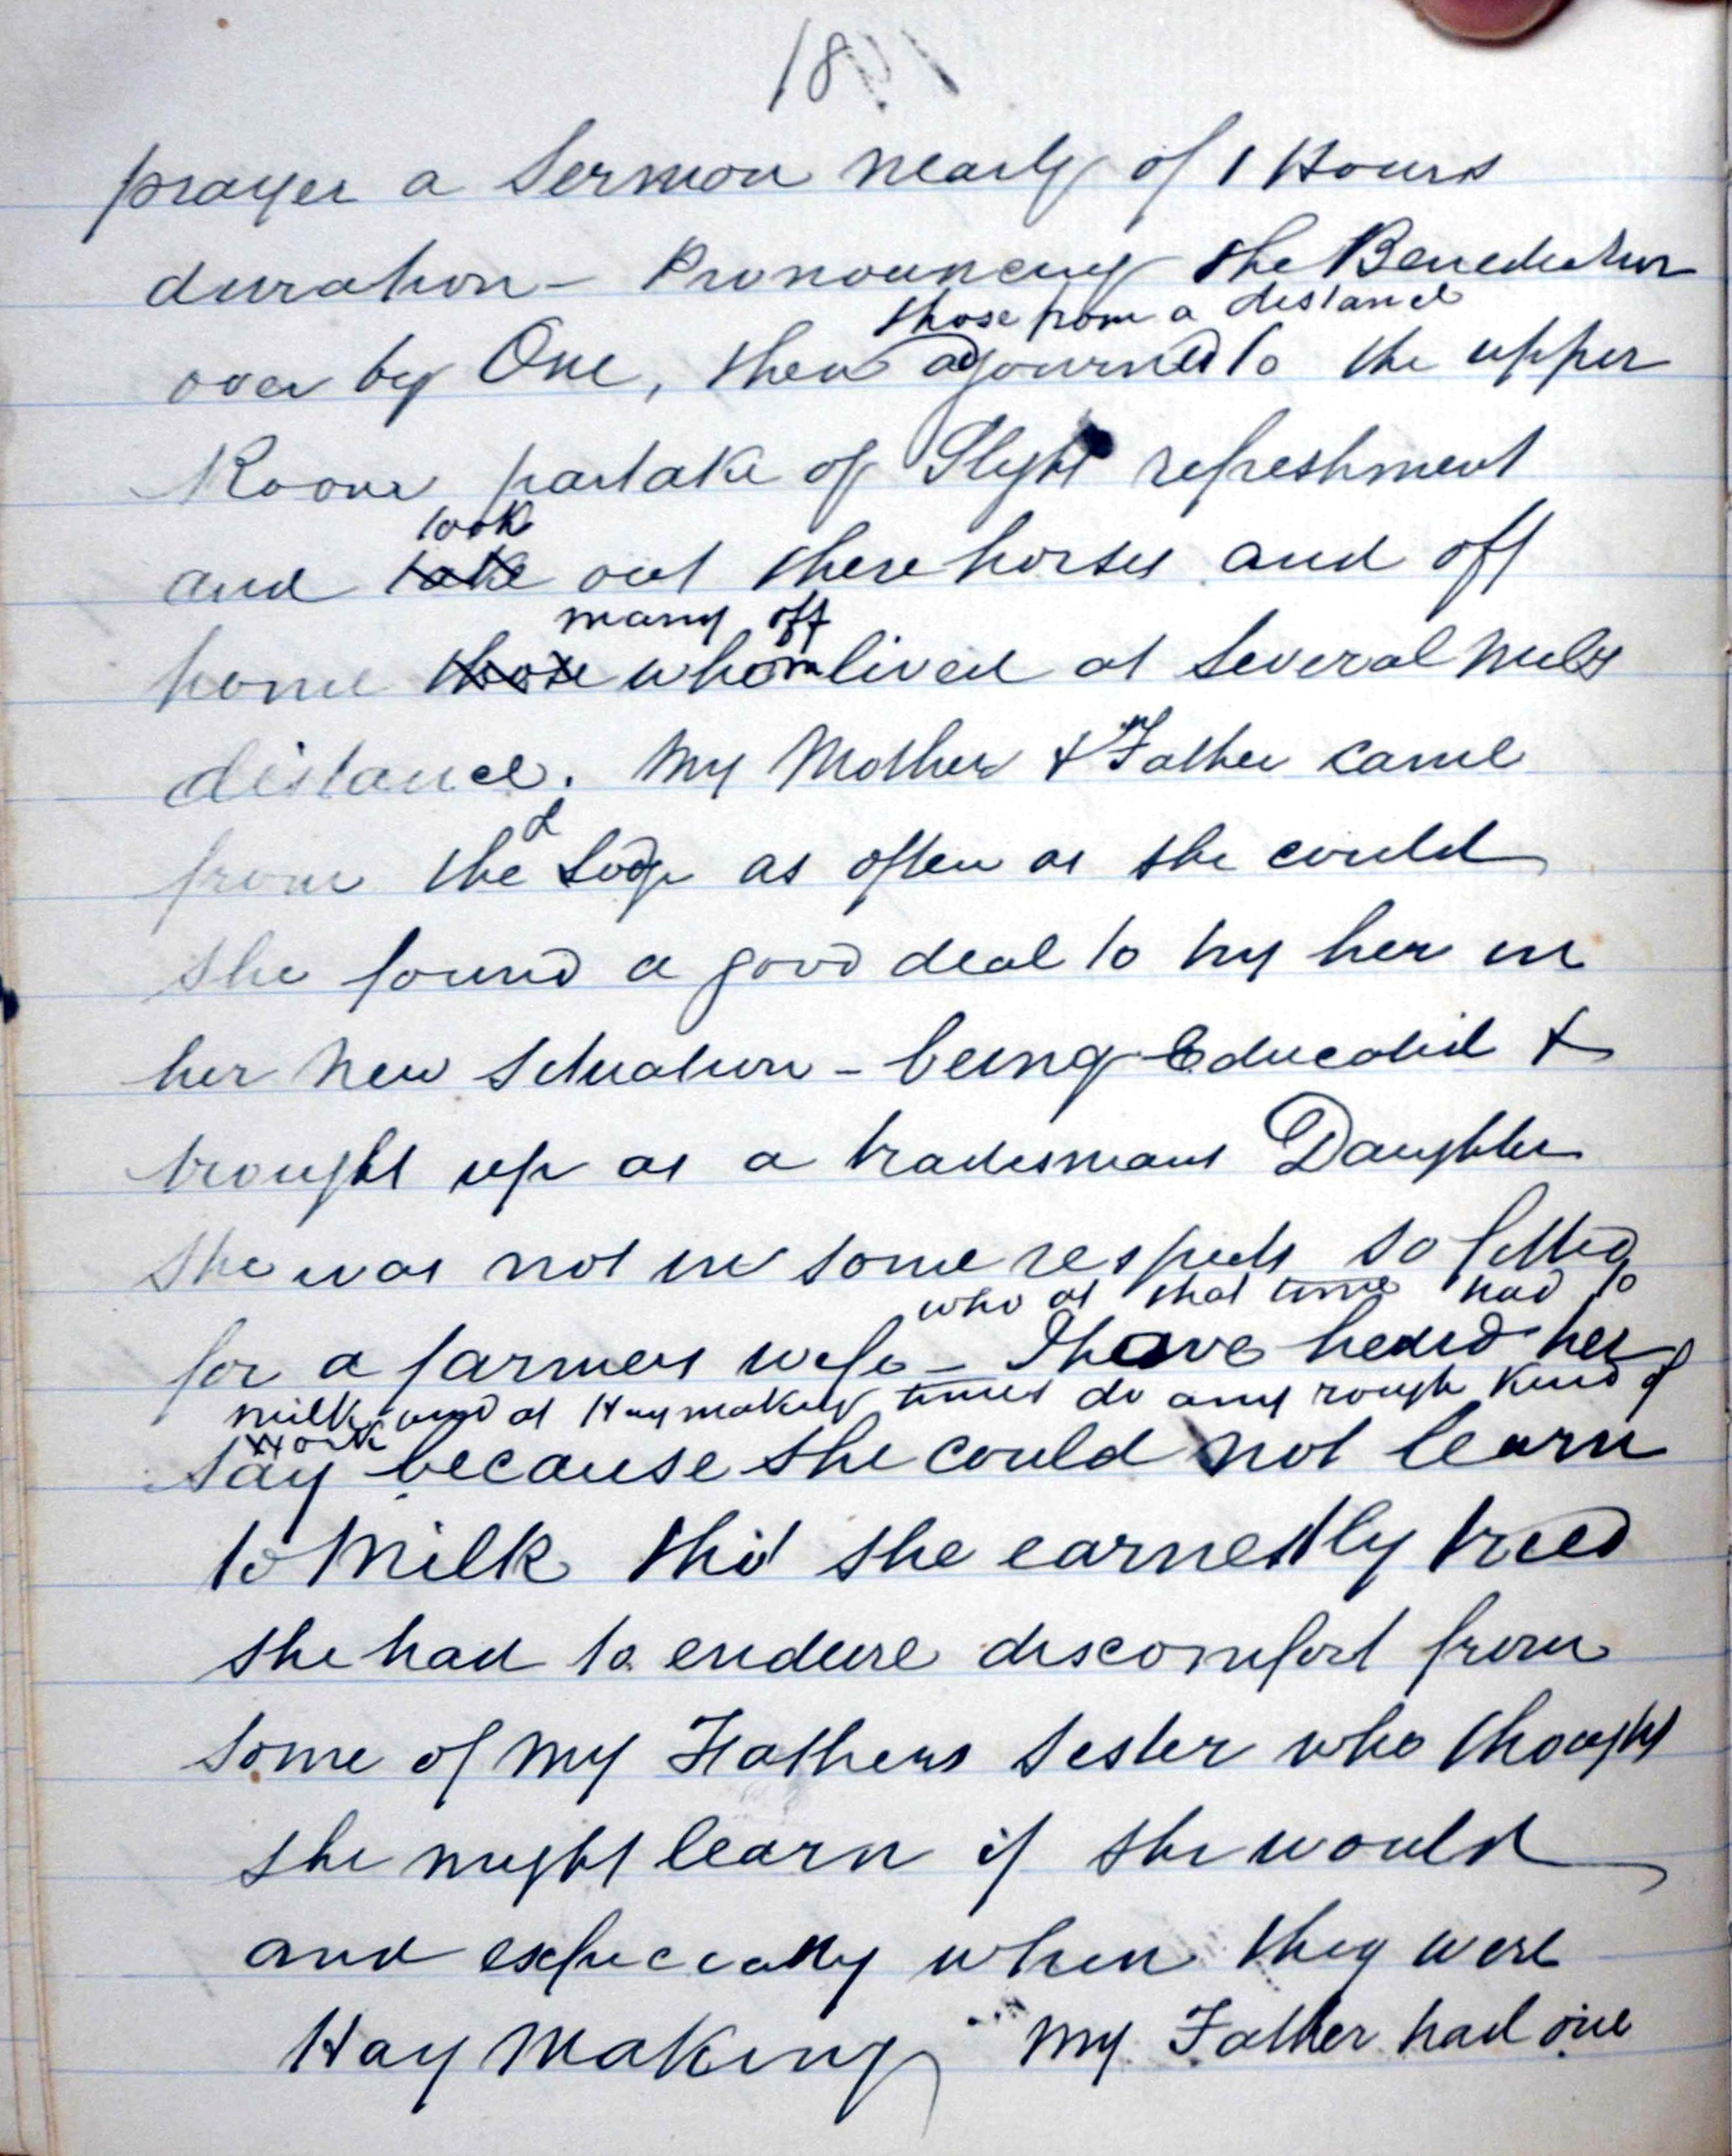 18
prayer a Sermon nearly of 1 Hours
duration - Pronouncing the Benediction
those from a distance
over by One, then adjourned to the upper
Room partake of Slight refreshment
took
and take out there horses and off
many off
home those whom lived at several miles
distance. My Mother & Father came
from the Lodge as often as she could
she found a good deal to try her in
her new situation - being Educated &
brought up as a tradesmans Daughter
she was not in some respects so fitted
who at that time had to
for a farmers wife - I have heard her
milk and at Haymaking times do any rough kind of
work
say because she could not learn
to Milk tho' she earnestly tried
she had to endure discomfort from
some of my Fathers Sister who thought
she might learn if she would
and especially when they were
Hay Making My Father had one